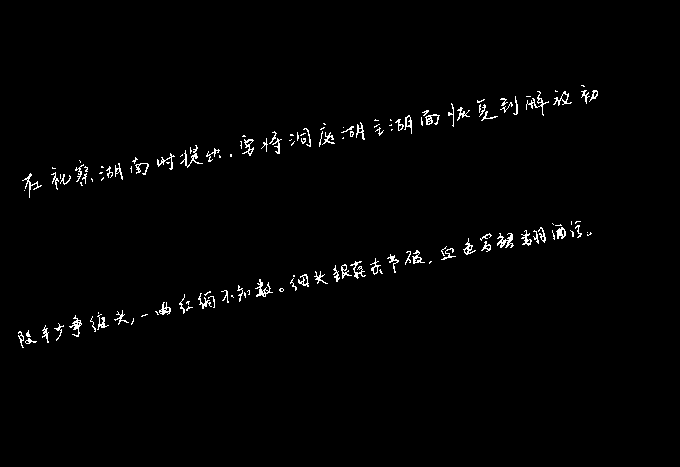 在视察湖南时提出,要将洞庭湖主湖面恢复到解放初
陵年少争缠头,一曲红绡不知数。钿头银篦击节碎,血色罗裙翻酒污。